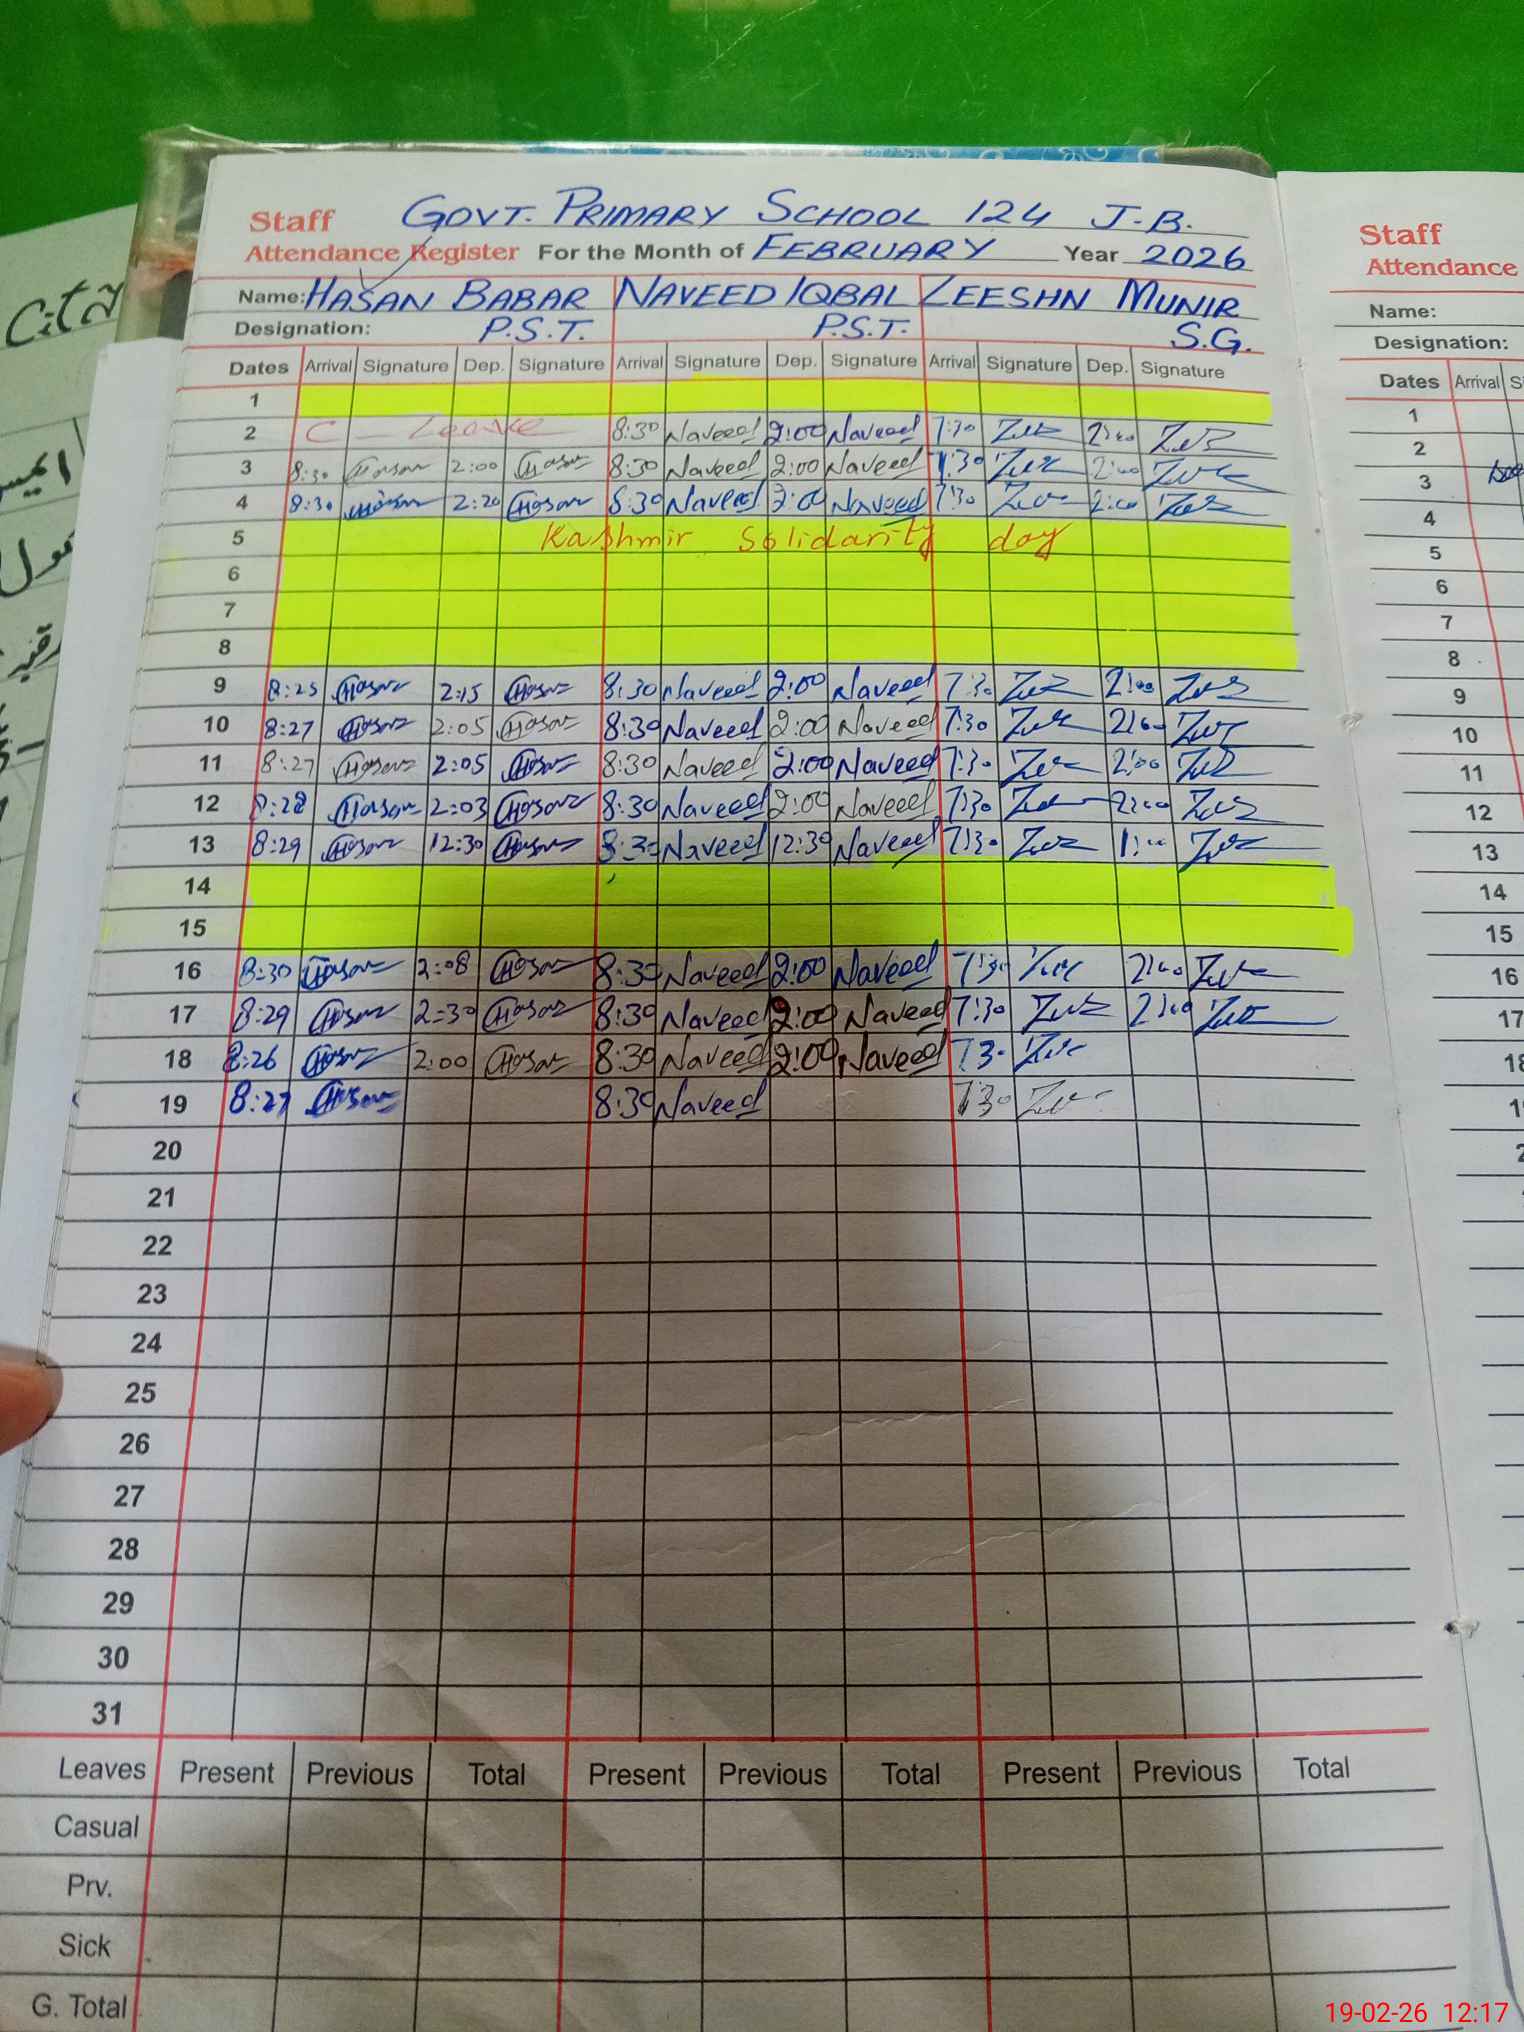 Staff GOVT. PRIMARY SCHOOL 124 J.B.
Attendance Register For the Month of FEBRUARY Year 2026
Name: HASAN BABAR NAVEED IQBAL ZEESHN MUNIR
Designation: P.S.T. P.S.T. S.G.
Dates Arrival Signature Dep. Signature Arrival Signature Dep. Signature Arrival Signature Dep. Signature
1
2 C - Leave 8:30 Naveed 2:00 Naveed 7:30 2:00
3 8:30 Hasan 2:00 Hasan 8:30 Naveed 2:00 Naveed 7:30 2:00
4 8:30 Hasan 2:20 Hasan 8:30 Naveed 2:00 Naveed 7:30 2:00
5 Kashmir Solidarity day
6
7
8
9 8:25 Hasan 2:15 Hasan 8:30 Naveed 2:00 Naveed 7:30 2:00
10 8:27 Hasan 2:05 Hasan 8:30 Naveed 2:00 Naveed 7:30 2:00
11 8:27 Hasan 2:05 Hasan 8:30 Naveed 2:00 Naveed 7:30 2:00
12 8:28 Hasan 2:03 Hasan 8:30 Naveed 2:00 Naveed 7:30 2:00
13 8:29 Hasan 12:30 Hasan 8:30 Naveed 12:30 Naveed 7:30 1:00
14
15
16 8:30 Hasan 2:08 Hasan 8:30 Naveed 2:00 Naveed 7:30 2:00
17 8:29 Hasan 2:30 Hasan 8:30 Naveed 2:00 Naveed 7:30 2:00
18 8:26 Hasan 2:00 Hasan 8:30 Naveed 2:00 Naveed 7:30
19 8:27 Hasan 8:30 Naveed 7:30
20
21
22
23
24
25
26
27
28
29
30
31
Leaves Present Previous Total Present Previous Total Present Previous Total
Casual
Prv.
Sick
G. Total
Staff
Attendance
Name:
Designation:
Dates Arrival
1
2
3
4
5
6
7
8
9
10
11
12
13
14
15
16
17
19-02-26 12:17